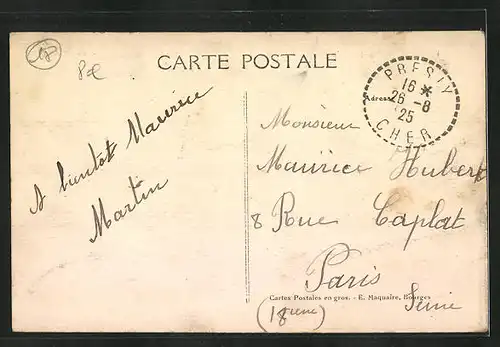 CARTE POSTALE
PRESLY
16 *
26 -8
25
CHER
Adresse
A bientôt Maurice
Martin
Monsieur
Maurice Hubert
8 Rue Caplat
Paris
Cartes Postales en gros. - E. Maquaire, Bourges
(18eme)
Seine